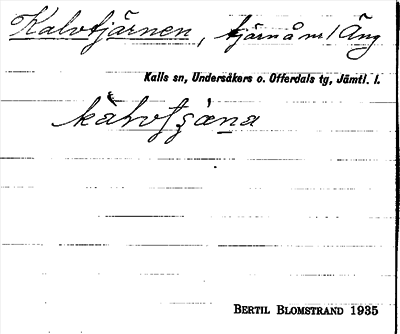 Kalvtjärnen, tjärn å nr 1 Äng
Kalls sn, Undersåkers o. Offerdals tg, Jämtl. l.
BERTIL BLOMSTRAND 1935